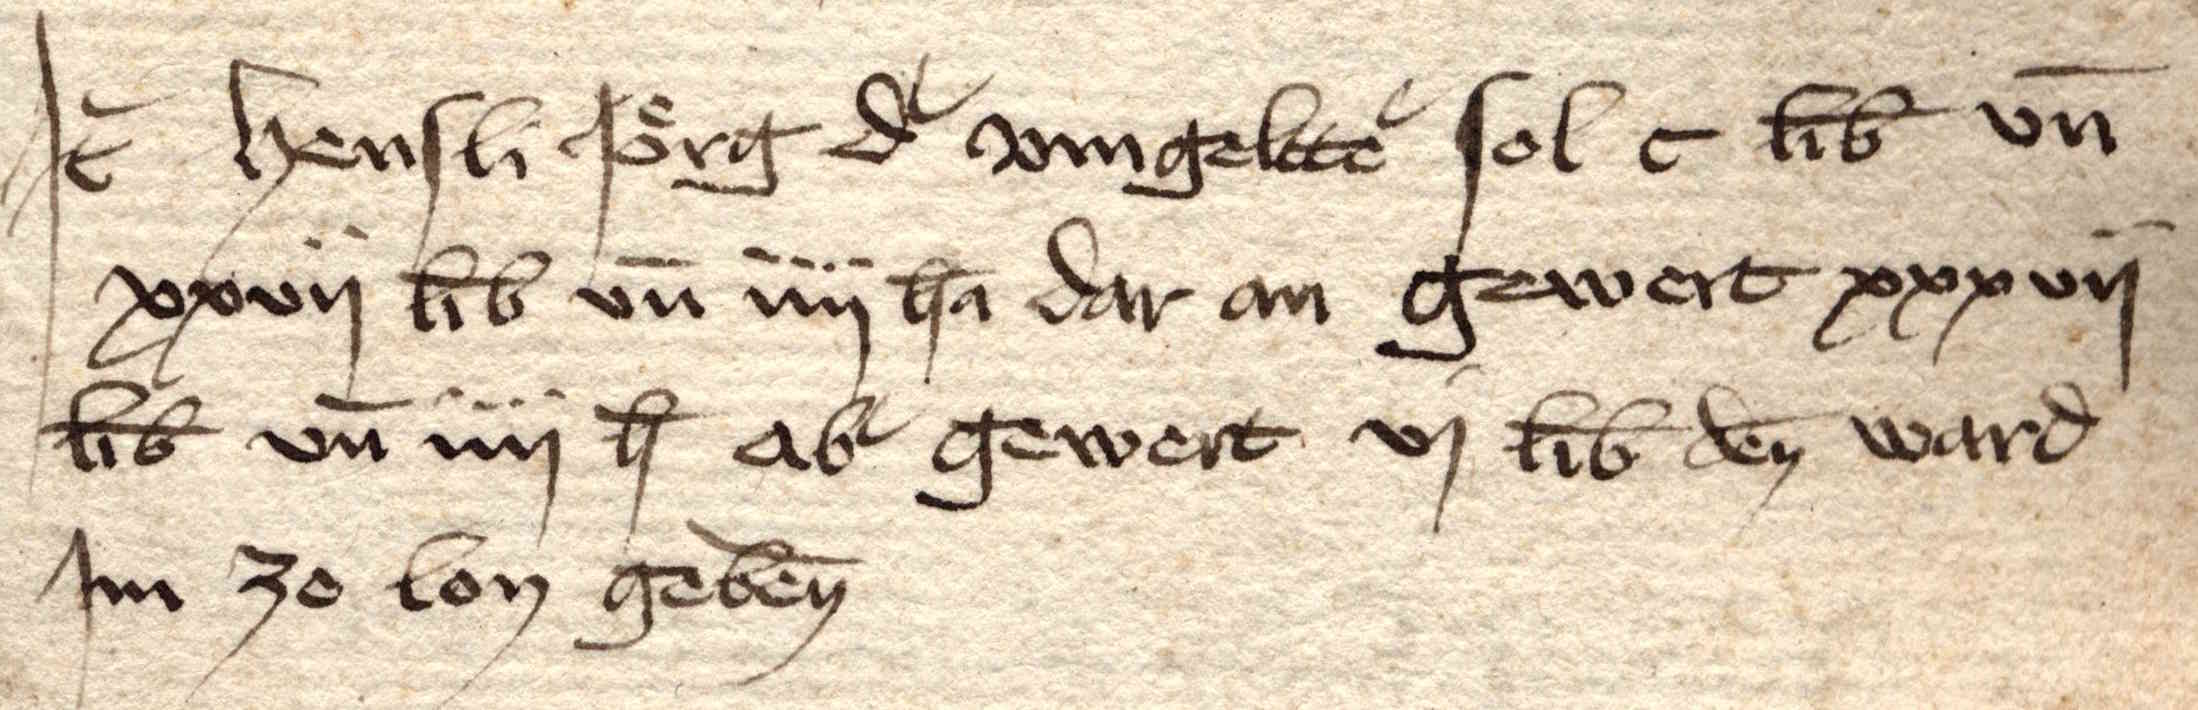 It̄ Hensli Jörg d' vmgeltte' sol c lib vn̄
xxvij lib vn̄ iiij ha dar an gewert xxxvij
lib vn̄ iiij h ab' gewert vj lib den̄ ward
Im ze lon geben̄